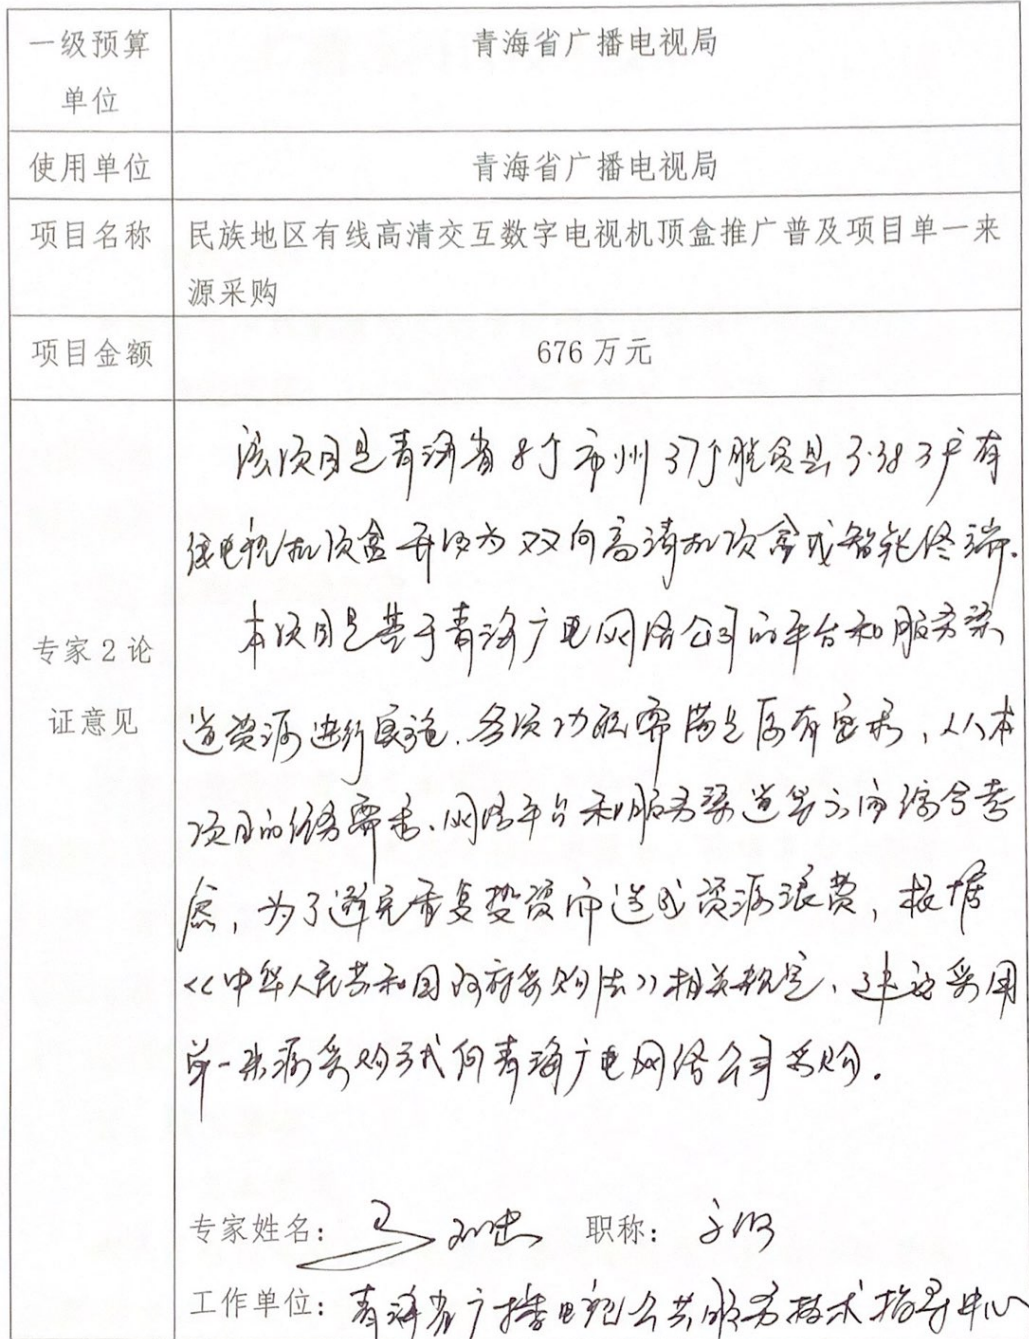 一级预算
单位
青海省广播电视局
使用单位
青海省广播电视局
项目名称
民族地区有线高清交互数字电视机顶盒推广普及项目单一来
源采购
项目金额
676 万元
专家 2 论
证意见
该项目是青海省8个市州37个脱贫县3.38万户有
线电视机顶盒升级为双向高清机顶盒或智能终端.
本项目是基于青海广电网络公司的平台和服务渠
道资源进行实施.各项功能需满足原有,从本
项目的任务需求、网络平台和服务渠道等方面综合考
虑,为了避免重复投资而造成资源浪费,根据
《中华人民共和国政府采购法》相关规定,建议采用
单一来源采购方式向青海广电网络公司采购.
专家姓名:
职称:
工作单位: 青海省广播电视公共服务技术指导中心